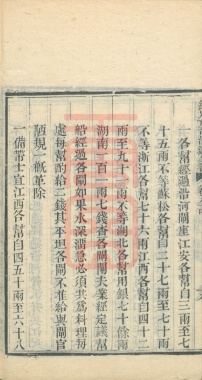 一各幫經過帶河閘座江安各幫自二兩七
十五兩不等蘇松各幫自二十七兩至七十兩
不等浙江各幫七十六兩江西各幫自四十二
兩至九十二兩不等湖北各幫用銀七十餘兩
湖南一百一兩七錢查各閘閘夫業經定議幫
船經過各閘如果水深溜急必須共為料理每
處每幫酌給二錢其平坦各閘不准給與閘官
陋規一概革除
一備帶土宜江西各幫自四五十兩至六十八